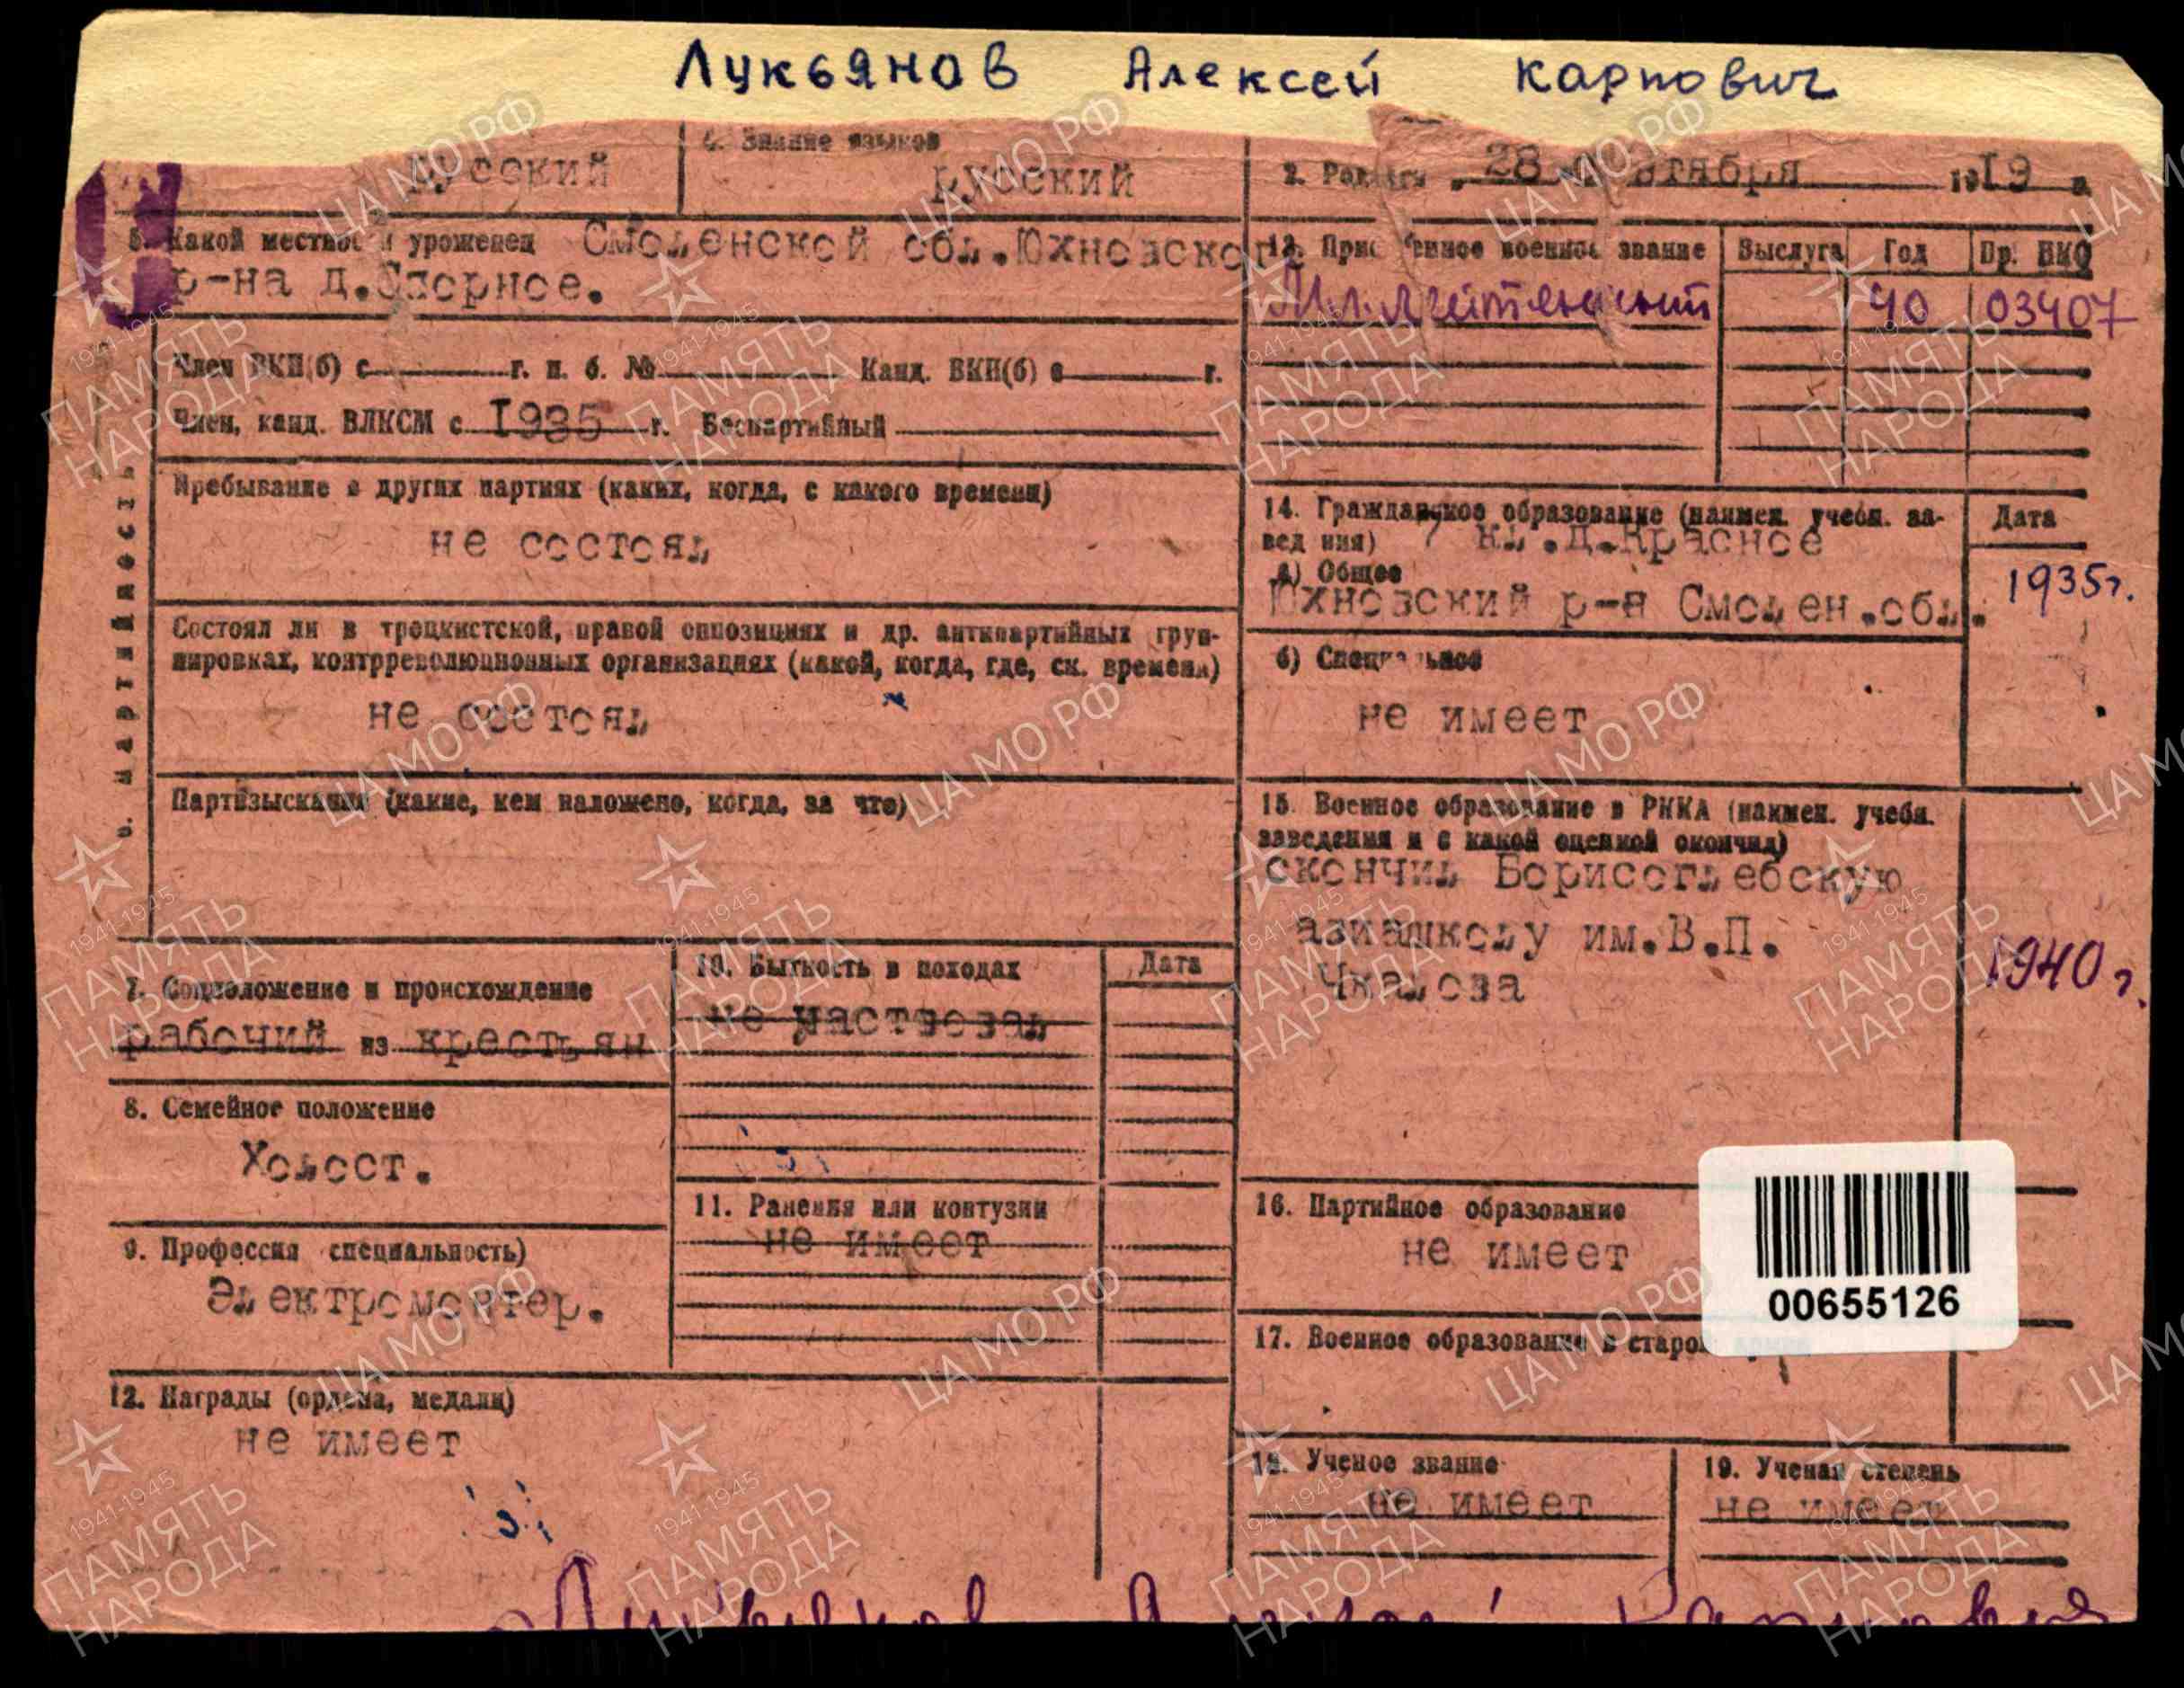 Лукьянов Алексей Карпович
русский
4. Знание языков
русский
5. Какой местности уроженец Смоленской обл.Юхновско
р-на д.
Член ВКП(б) с г. п. б. № Канд. ВКП(б) с г.
Член, канд. ВЛКСМ с 1935 г. Беспартийный
6. Партийность
Пребывание в других партиях (каких, когда, с какого времени)
не состоял
Состоял ли в троцкистской, правой оппозициях и др. антипартийных груп-
пировках, контрреволюционных организациях (какой, когда, где, ск. времени)
не состоял
Партвзыскания (какие, кем наложено, когда, за что)
7. Соцположение и происхождение
рабочий из крестьян
8. Семейное положение
Холост.
9. Профессия специальность)
Электромонтер.
10. Бытность в походах
Дата
не участвовал
11. Ранения или контузии
не имеет
12. Награды (ордена, медали)
не имеет
2. Родился 28 1919 г.
13. Присвоенное военное звание Выслуга Год Пр. НКО
Мл. лейтенант 40 03407
14. Гражданское образование (наимен. учебн. за-
вед ния) 7 кл.д.Красное
Дата
а) Общее
Юхновский р-н Смолен.обл.
1935г.
б) Специальное
не имеет
15. Военное образование в РККА (наимен. учебн.
заведения и с какой оценкой окончил)
окончил Борисоглебскую
авиашколу им.В.П.
Чкалова
1940г.
16. Партийное образование
не имеет
00655126
17. Военное образование в старой армии
18. Ученое звание
не имеет
19. Ученая степень
не имеет
Лукьянов Алексей Карпович
ЦА МО РФ
1941-1945
ПАМЯТЬ
НАРОДА